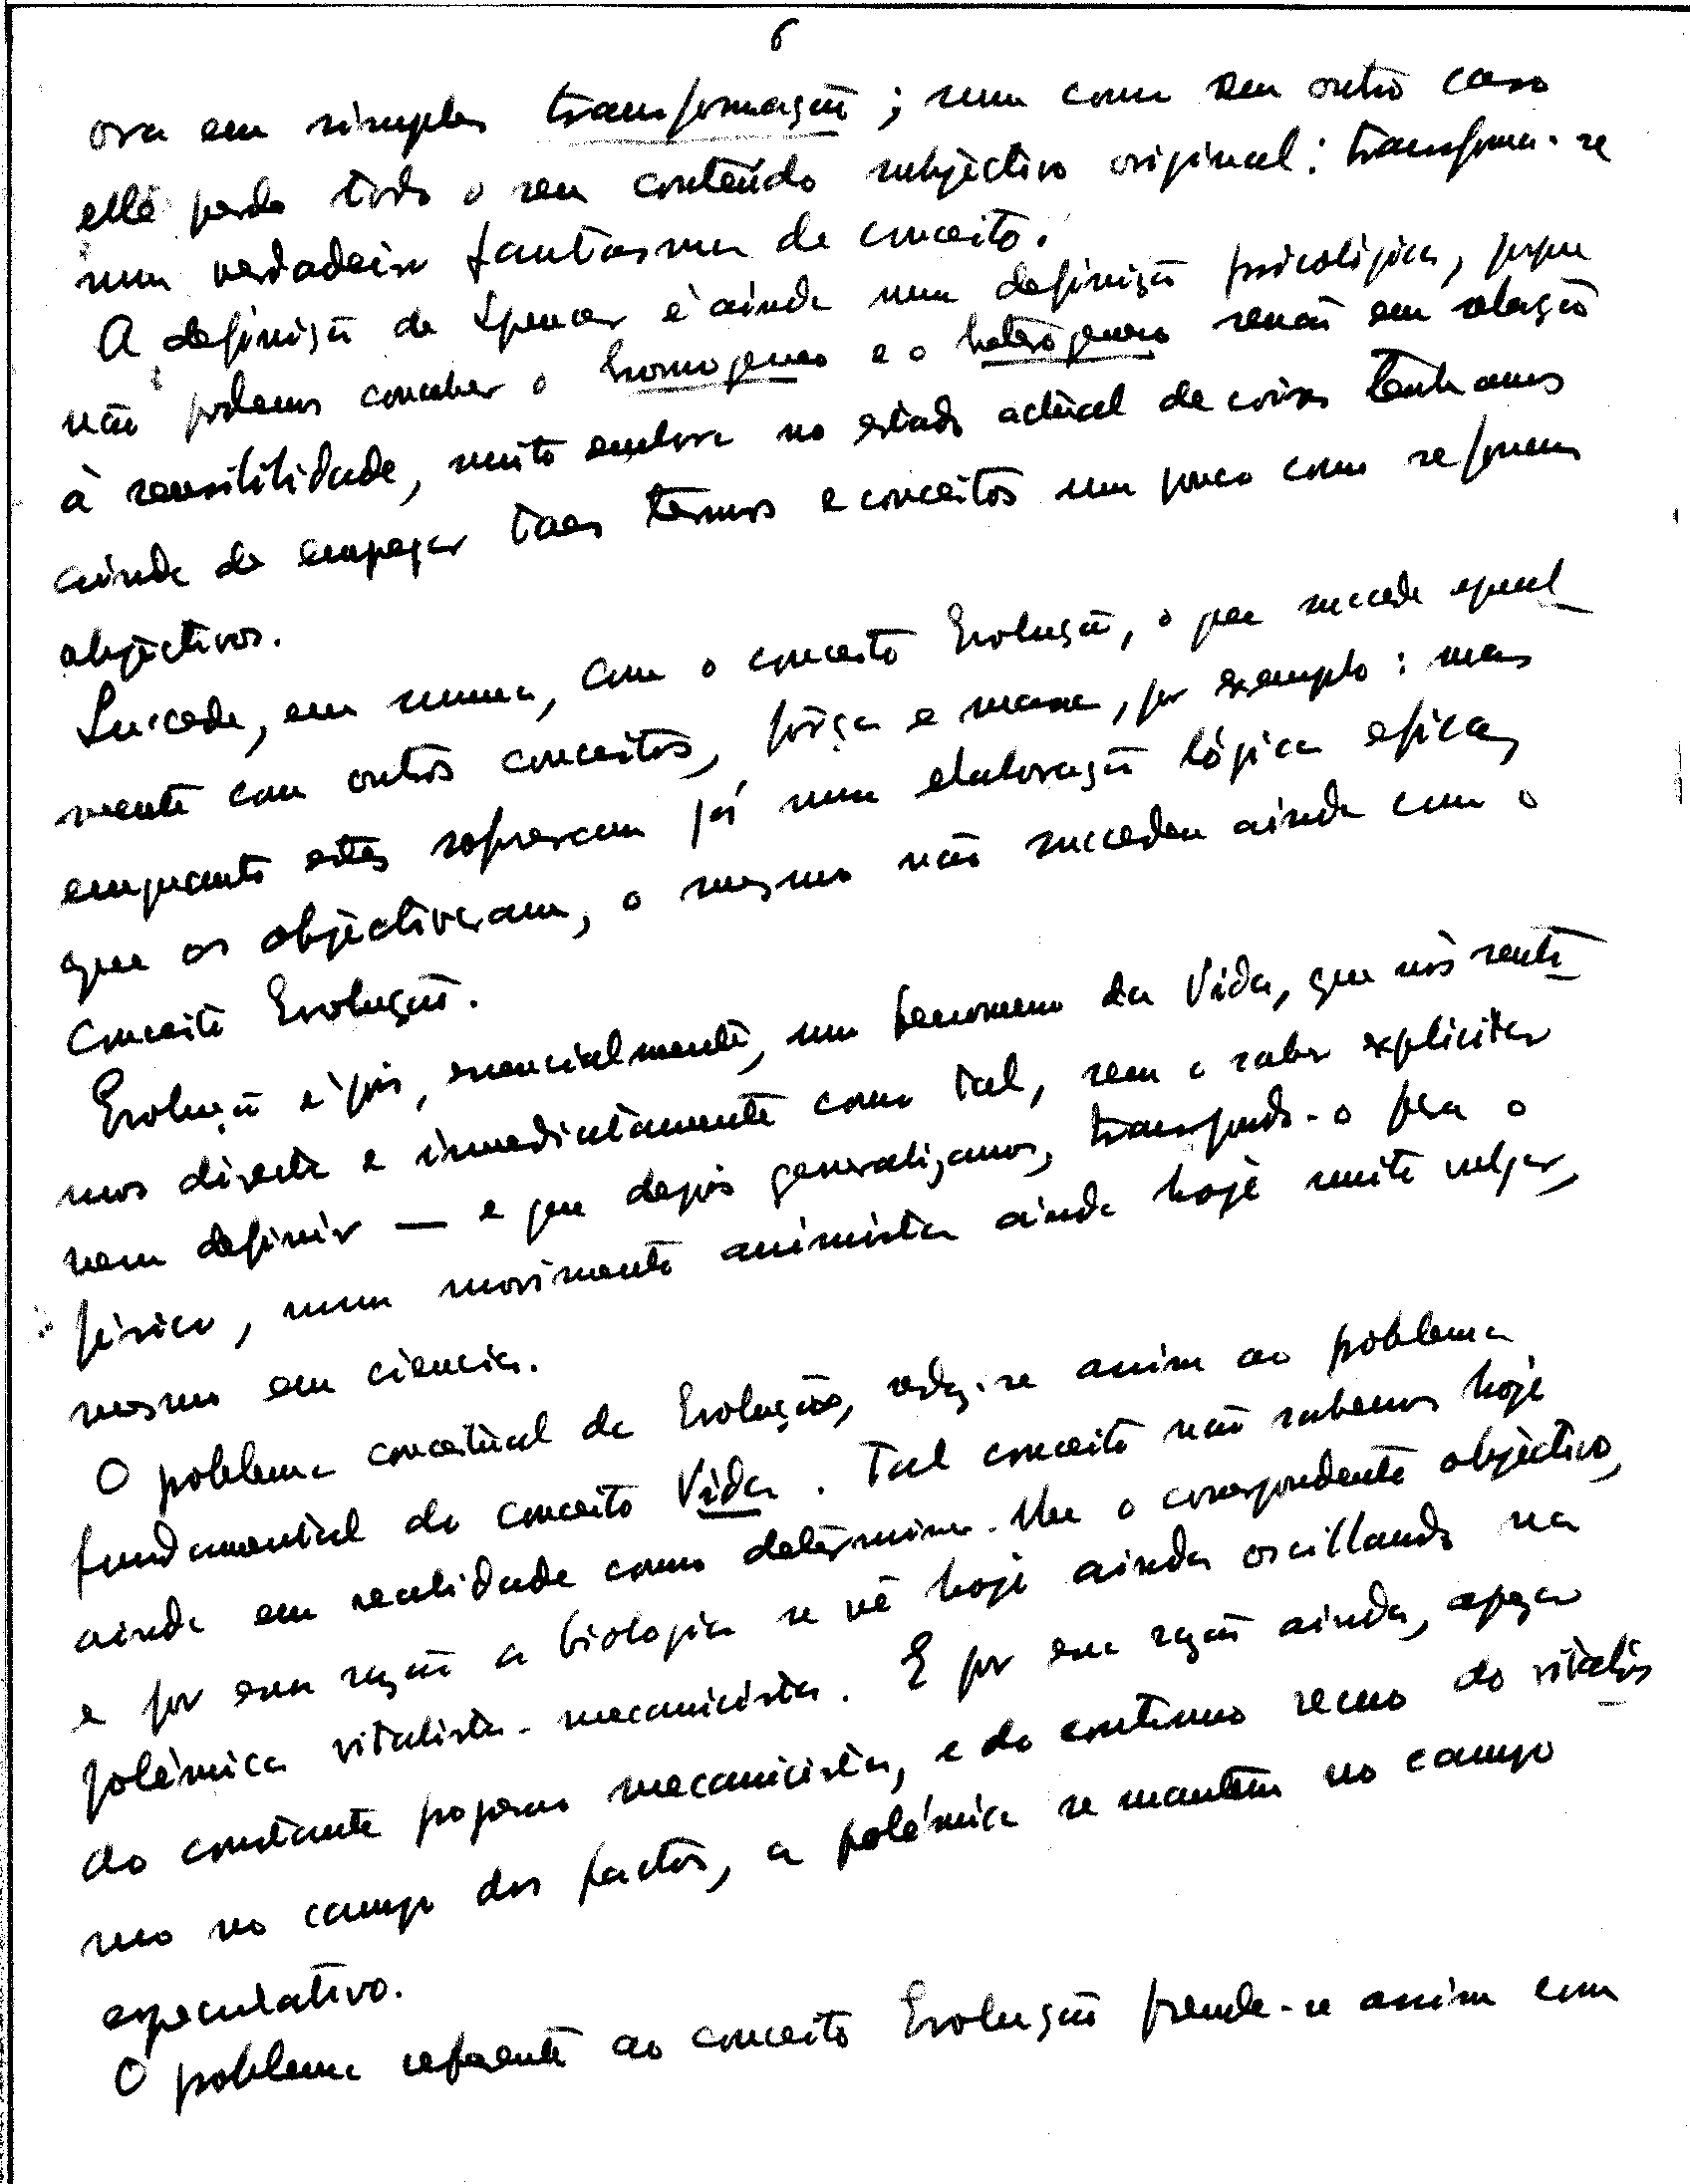 6
ora em simples transformação; num como em outro caso
elle perde todo o seu conteúdo subjectivo original: transforma-se
num verdadeiro fantasma de conceito.
A definição de Spencer é ainda uma definição psicológica, porque
não podemos conceber o homogeneo e o heterogeneo senão em relação
à sensibilidade, muito embora no estado actual de coisas tenhamos
ainda de empregar taes termos e conceitos um pouco como se fossem
objectivos.
Succede, em summa, com o conceito Evolução, o que succede egual-
mente com outros conceitos, fôrça e massa, por exemplo: mas
emquanto estes sofreram já uma elaboração lógica eficaz
que os objectivaram, o mesmo não succedeu ainda com o
conceito Evolução.
Evolução é pois, essencialmente, um fenomeno da Vida, que nós senti-
mos directa e immediatamente como tal, sem o saber explicitar
nem definir — e que depois generalizamos, transpondo-o para o
físico, num movimento animista ainda hoje muito vulgar,
mesmo em ciencia.
O problema conceitual da Evolução, reduz-se assim ao problema
fundamental do conceito Vida. Tal conceito não sabemos hoje
ainda em realidade como determinar-lhe o correspondente objectivo,
e por essa razão a biologia se vê hoje ainda oscillando na
polémica vitalista-mecanicista. E por essa razão ainda, apezar
do constante progresso mecanicista, e do contínuo recuo do vitalis-
mo no campo dos factos, a polémica se mantém no campo
especulativo.
O problema referente ao conceito Evolução prende-se assim com